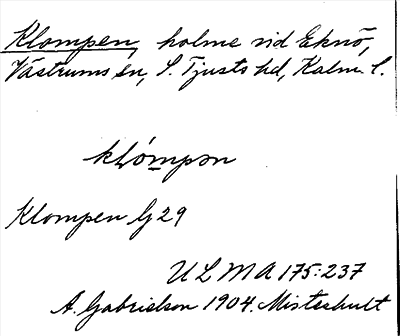 Klompen, holme vid Eknö,
Västrums sn, S. Tjusts hd, Kalm. l.
kLómpən
Klompen G 29
ULMA 175:237
A. Gabrielson 1904. Misterhult